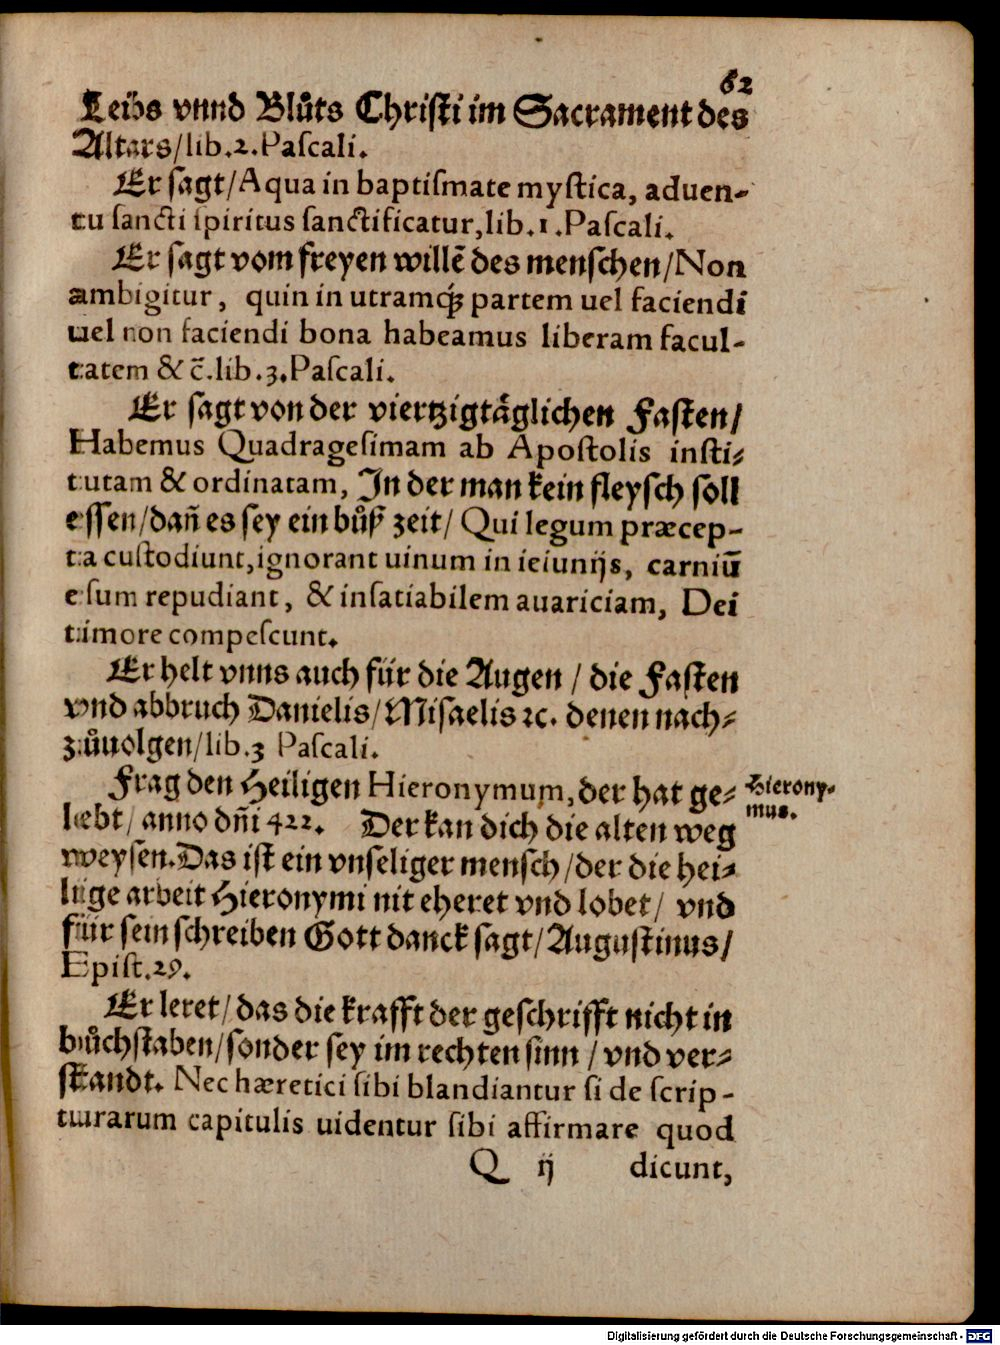 62
Leibs vnnd Blůts Christi im Sacrament des
Altars/lib.2.Pascali.
Er sagt/Aqua in baptismate mystica, aduen-
tu sancti spiritus sanctificatur,lib.1.Pascali.
Er sagt vom freyen willẽ des menschen/Non
ambigitur, quin in utramq; partem uel faciendi
uel non faciendi bona habeamus liberam facul-
tatem & c̃.lib.3.Pascali.
Er sagt von der viertzigtäglichen Fasten/
Habemus Quadragesimam ab Apostolis insti-
tutam & ordinatam, In der man kein fleysch soll
essen/dañ es sey ein bůß zeit/ Qui legum præcep-
ta custodiunt,ignorant uinum in ieiunijs, carniũ
esum repudiant, & insatiabilem auariciam, Dei
timore compescunt.
Er helt vnns auch für die Augen / die Fasten
vnd abbruch Danielis/Misaelis ꝛc. denen nach-
zůuolgen/lib.3 Pascali.
Frag den Heiligen Hieronymum,der hat ge-
lebt/ anno dñi 422. Der kan dich die alten weg
weysen.Das ist ein vnseliger mensch/der die hei-
lige arbeit Hieronymi nit eheret vnd lobet/ vnd
für sein schreiben Gott danck sagt/Augustinus/
Epist.29.
Er leret/das die krafft der geschrifft nicht in
bůchstaben/sonder sey im rechten sinn / vnd ver-
standt. Nec hæretici sibi blandiantur si de scrip-
turarum capitulis uidentur sibi affirmare quod
Q ij dicunt,
Hierony-
mus.
Digitalisierung gefördert durch die Deutsche Forschungsgemeinschaft - DFG